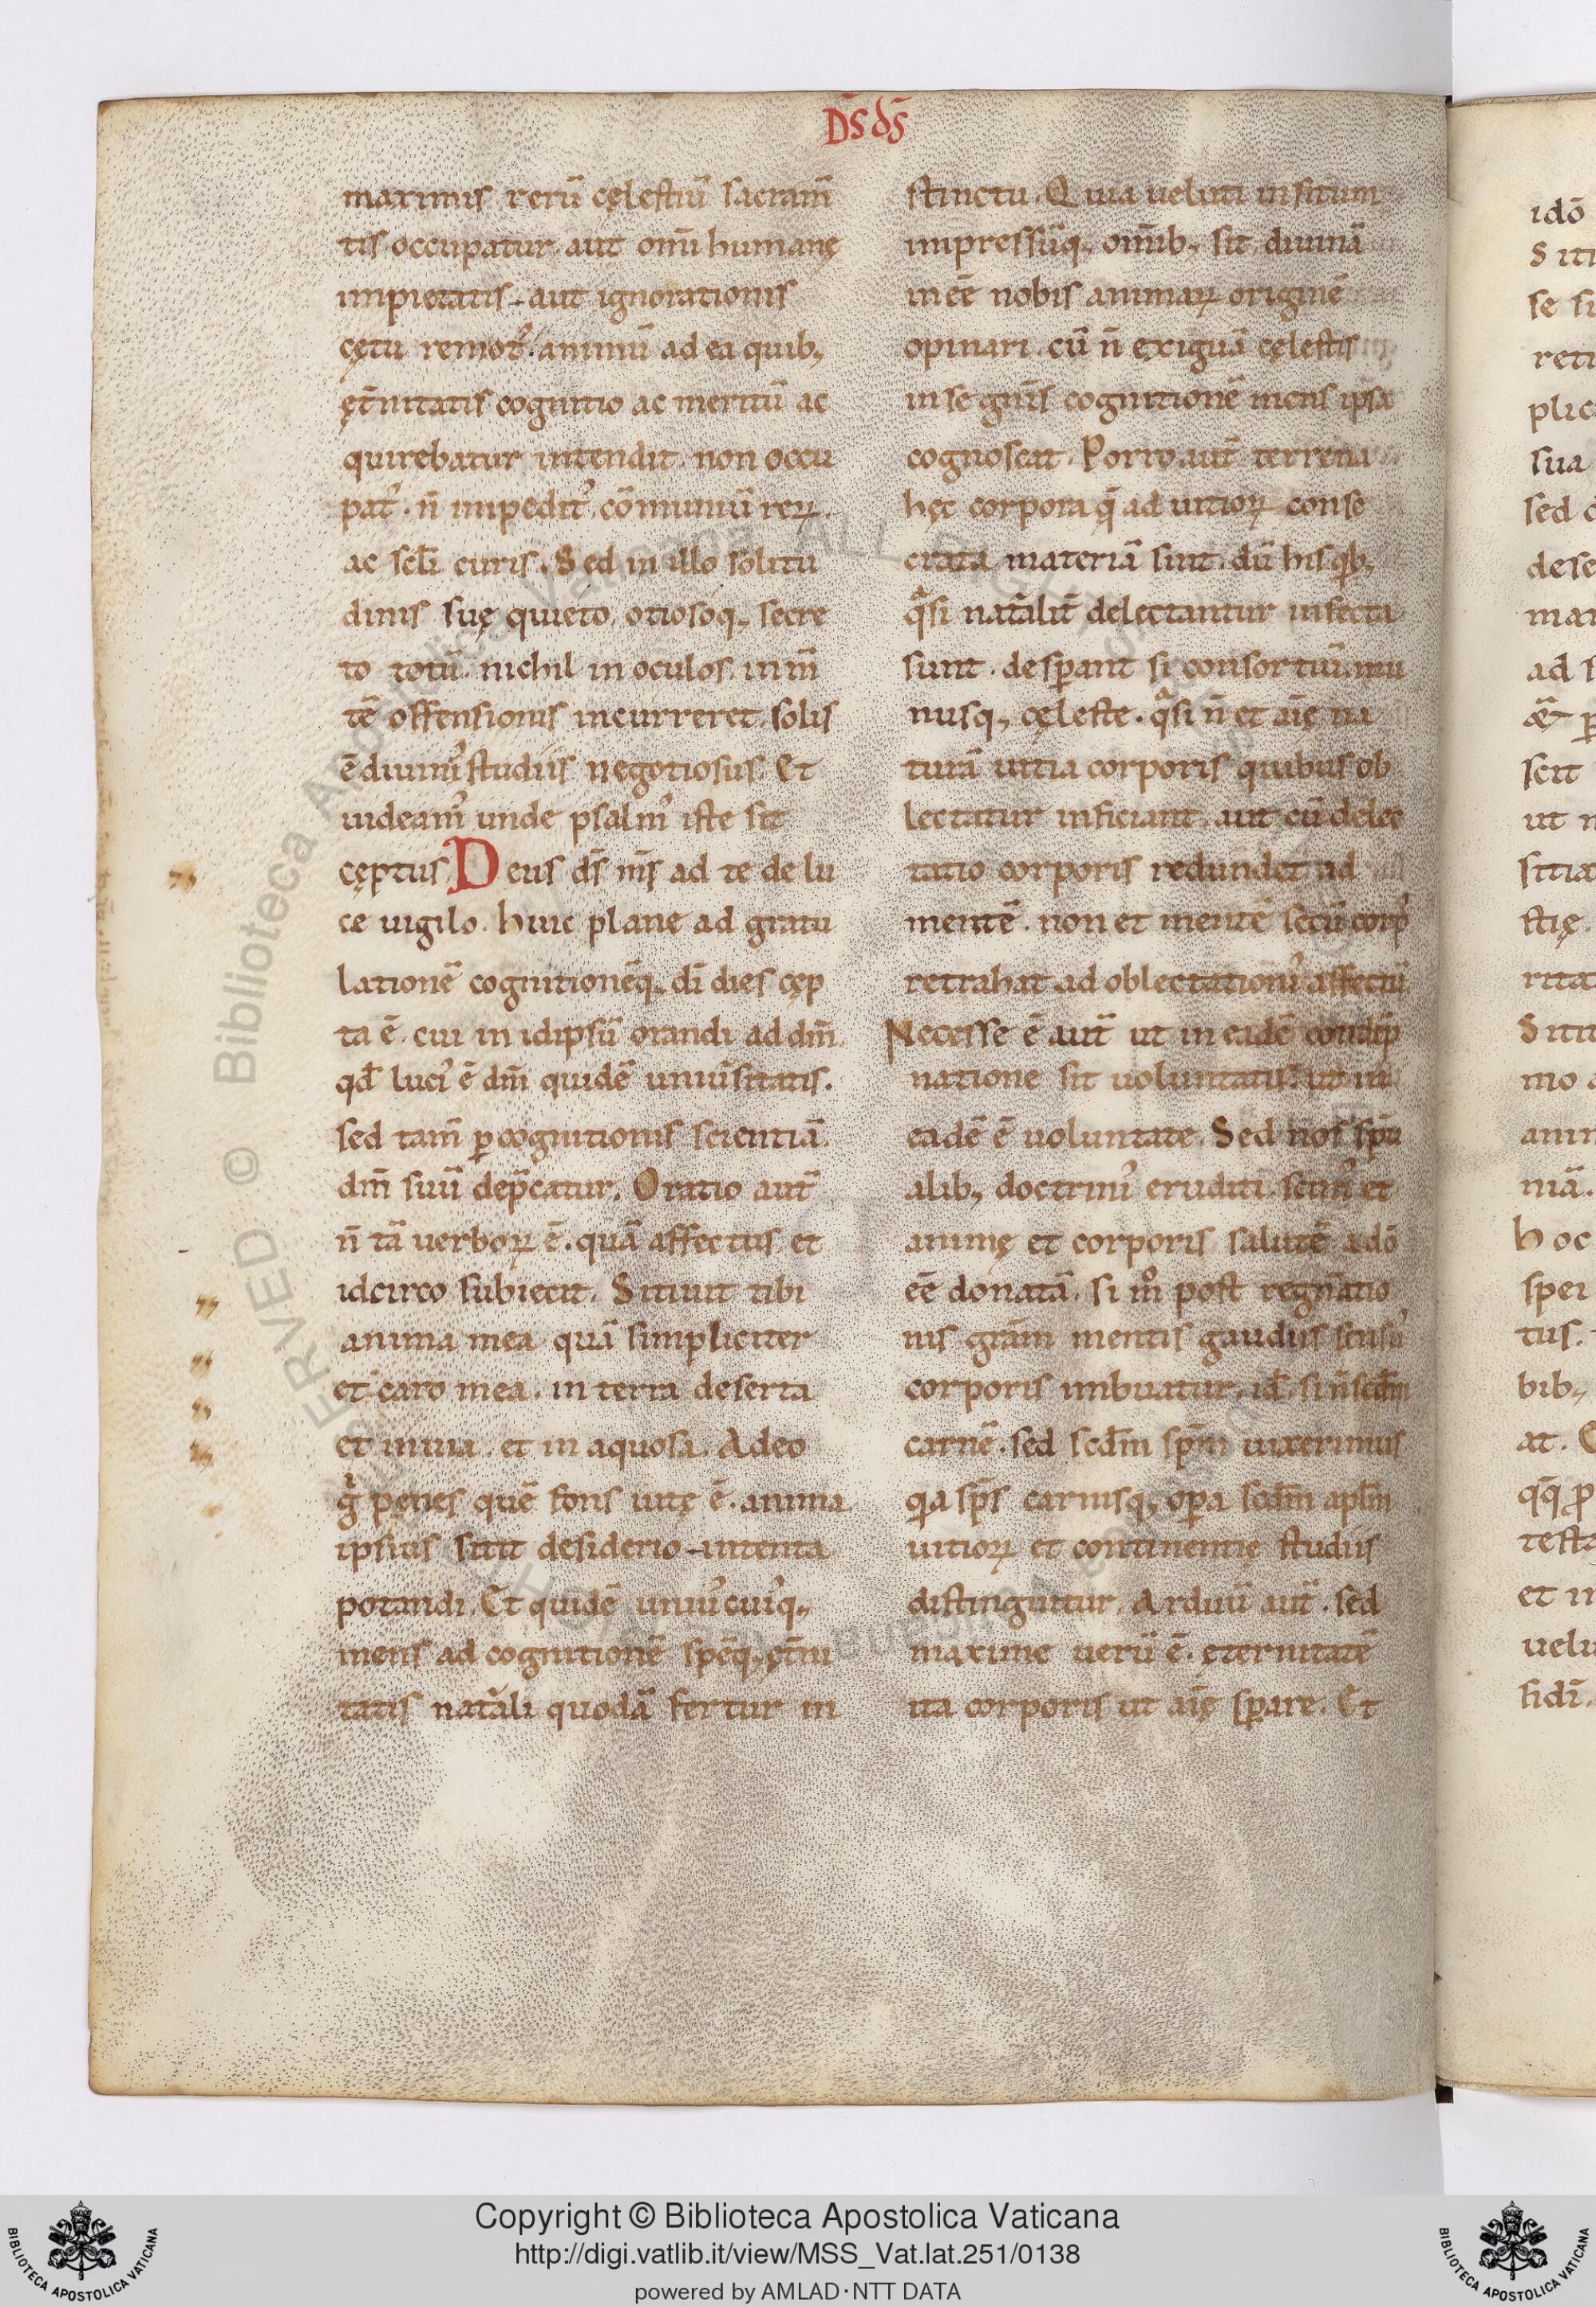 Dn̄s ds̄
maximis rerū cęlestiū sacram̄
tis occupatur. aut omī humanę
impietatis. aut ignorationis
cętu remot᷒. animū ad ea quib;
ęt̄nitatis cognitio ac meritū ac
quirebatur intendit. non occu
pat᷒. n̄ impedit᷒. cōmuniū reꝝ.
ac scl̄i curis. Sed in illo solitu
dinis suę quieto otiosoq; secre
to totū. nichil in oculos. in m̄
tē offensionis incurreret. solis
ē diuini᷒ studiis negotiosus. Et
uideam᷒ unde psalm᷒ iste sit
cęptus. Deus ds̄ ms̄ ad te de lu
ce uigilo. huic plane ad gratu
lationē cognitionēq; dī dies cęp
ta ē. cui in idipsū orandi ad dm̄.
qd̄ luci᷒ ē dm̄ quidē uniūsitatis.
sed tam̄ ꝑ cognitionis scientiā.
dm̄ suū dep̄catur. Oratio aut̄
n̄ tā uerboꝝ ē. quā affectus. et
idcirco subiecit. Sitiuit tibi
anima mea quā simpliciter
et caro mea. in terra deserta
et inuia. et in aquosa. Adeo
gͥ penes quē fons uitę ē. anima
ipsius sitit desiderio intenta
potandi. Et quidē uniu᷒cui᷒q;
mens ad cognitionē spēq; ęt̄ni
tatis nat̄ali quodā fertur in
stinctu. Quia ueluti insitum
impressūq; omīb; sit diuinā
inēē nobis animaꝝ originē
opinari. cū n̄ exiguā cęlestis
in se gn̄is cognitionē mens ipsa
cognoscat. Porro aut̄ terrena
hęc corpora q̄ ad uitioꝝ conse
crata materiā sint. dū his qͥb;
qͣsi nat̄alit̄ delectantur infecta
sunt. desꝑant si consortiū mu
nusq; cęleste. qͣsi n̄ et aīę na
turā uitia corporis quibus ob
lectatur inficiant. aut cū delec
tatio corporis redundet ad
mentē. non et mentē secū corp᷒
retrahat ad oblectationi᷒ affectū
Necesse ē aut̄ ut in eadē condēp
natione sit uoluntatis. ut in
eadē ē uoluntate. Sed nos sp̄u
alib; doctrini᷒ eruditi scim᷒ et
animę et corporis salutē a dō
ēē donatā. si mͦ post regn̄atio
nis gr̄am mentis gaudiis sensu᷒
corporis imbuatur. id̄. si n̄ scdm̄
carnē. sed scdm̄ sp̄m uixerimus
qͥa sp̄s carnisq; oꝑa scdm̄ apl̄m
uitioꝝ et continentię studiis
distinguitur. Arduū aut̄. sed
maxime uerū ē. ęternitatē
ita corporis ut aīę sꝑare. Et
idō
Siti
se si
reti
plic
sua
sed c
dese
ad s
scit
ut n
sitia
stię.
rita
Sitii
mo a
anim
niā.
hoc
spei
tus.
bib;
at.
testa
et in
uelu
fidī.
Copyright © Biblioteca Apostolica Vaticana
http://digi.vatlib.it/view/MSS_Vat.lat.251/0138
powered by AMLAD·NTT DATA
BIBLIOTECA APOSTOLICA VATICANA
BIBLIOTECA APOSTOLICA VATICANA